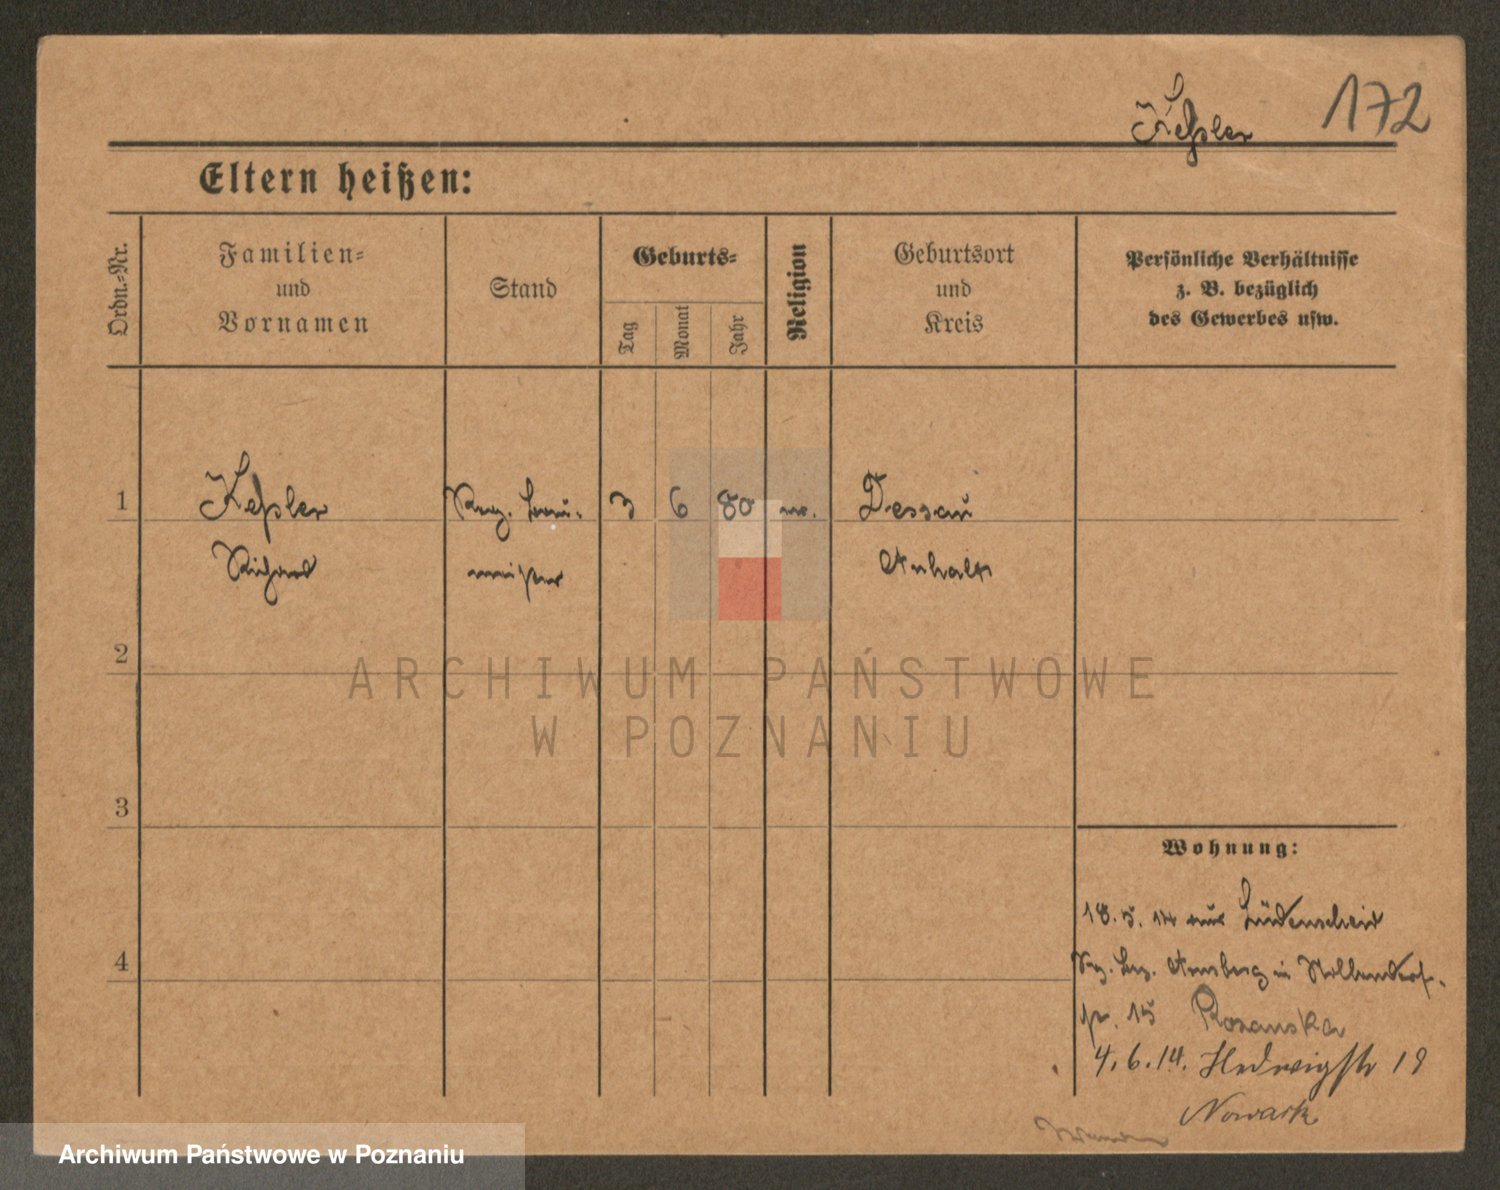 Keßler 172
Eltern heißen:
Ordn.-Nr.
Familien-
und
Vornamen
Stand
Geburts-
Tag
Monat
Jahr
Religion
Geburtsort
und
Kreis
Persönliche Verhältnisse
z. B. bezüglich
des Gewerbes usw.
1 Keßler Reg. Bau- 3 6 80 Dessau
Richard meister Anhalt
2
ARCHIWUM PAŃSTWOWE
W POZNANIU
3
Wohnung:
18. 5. 14 aus Lüdenscheid
4
Reg. Bez. Arnsberg in Nollendorf-
str. 15 Rosanska
4. 6. 14. Hedwigstr 19
Nowack
Archiwum Państwowe w Poznaniu